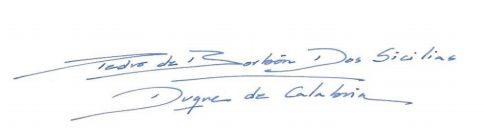 Pedro de Borbón Dos Sicilias
Duque de Calabria